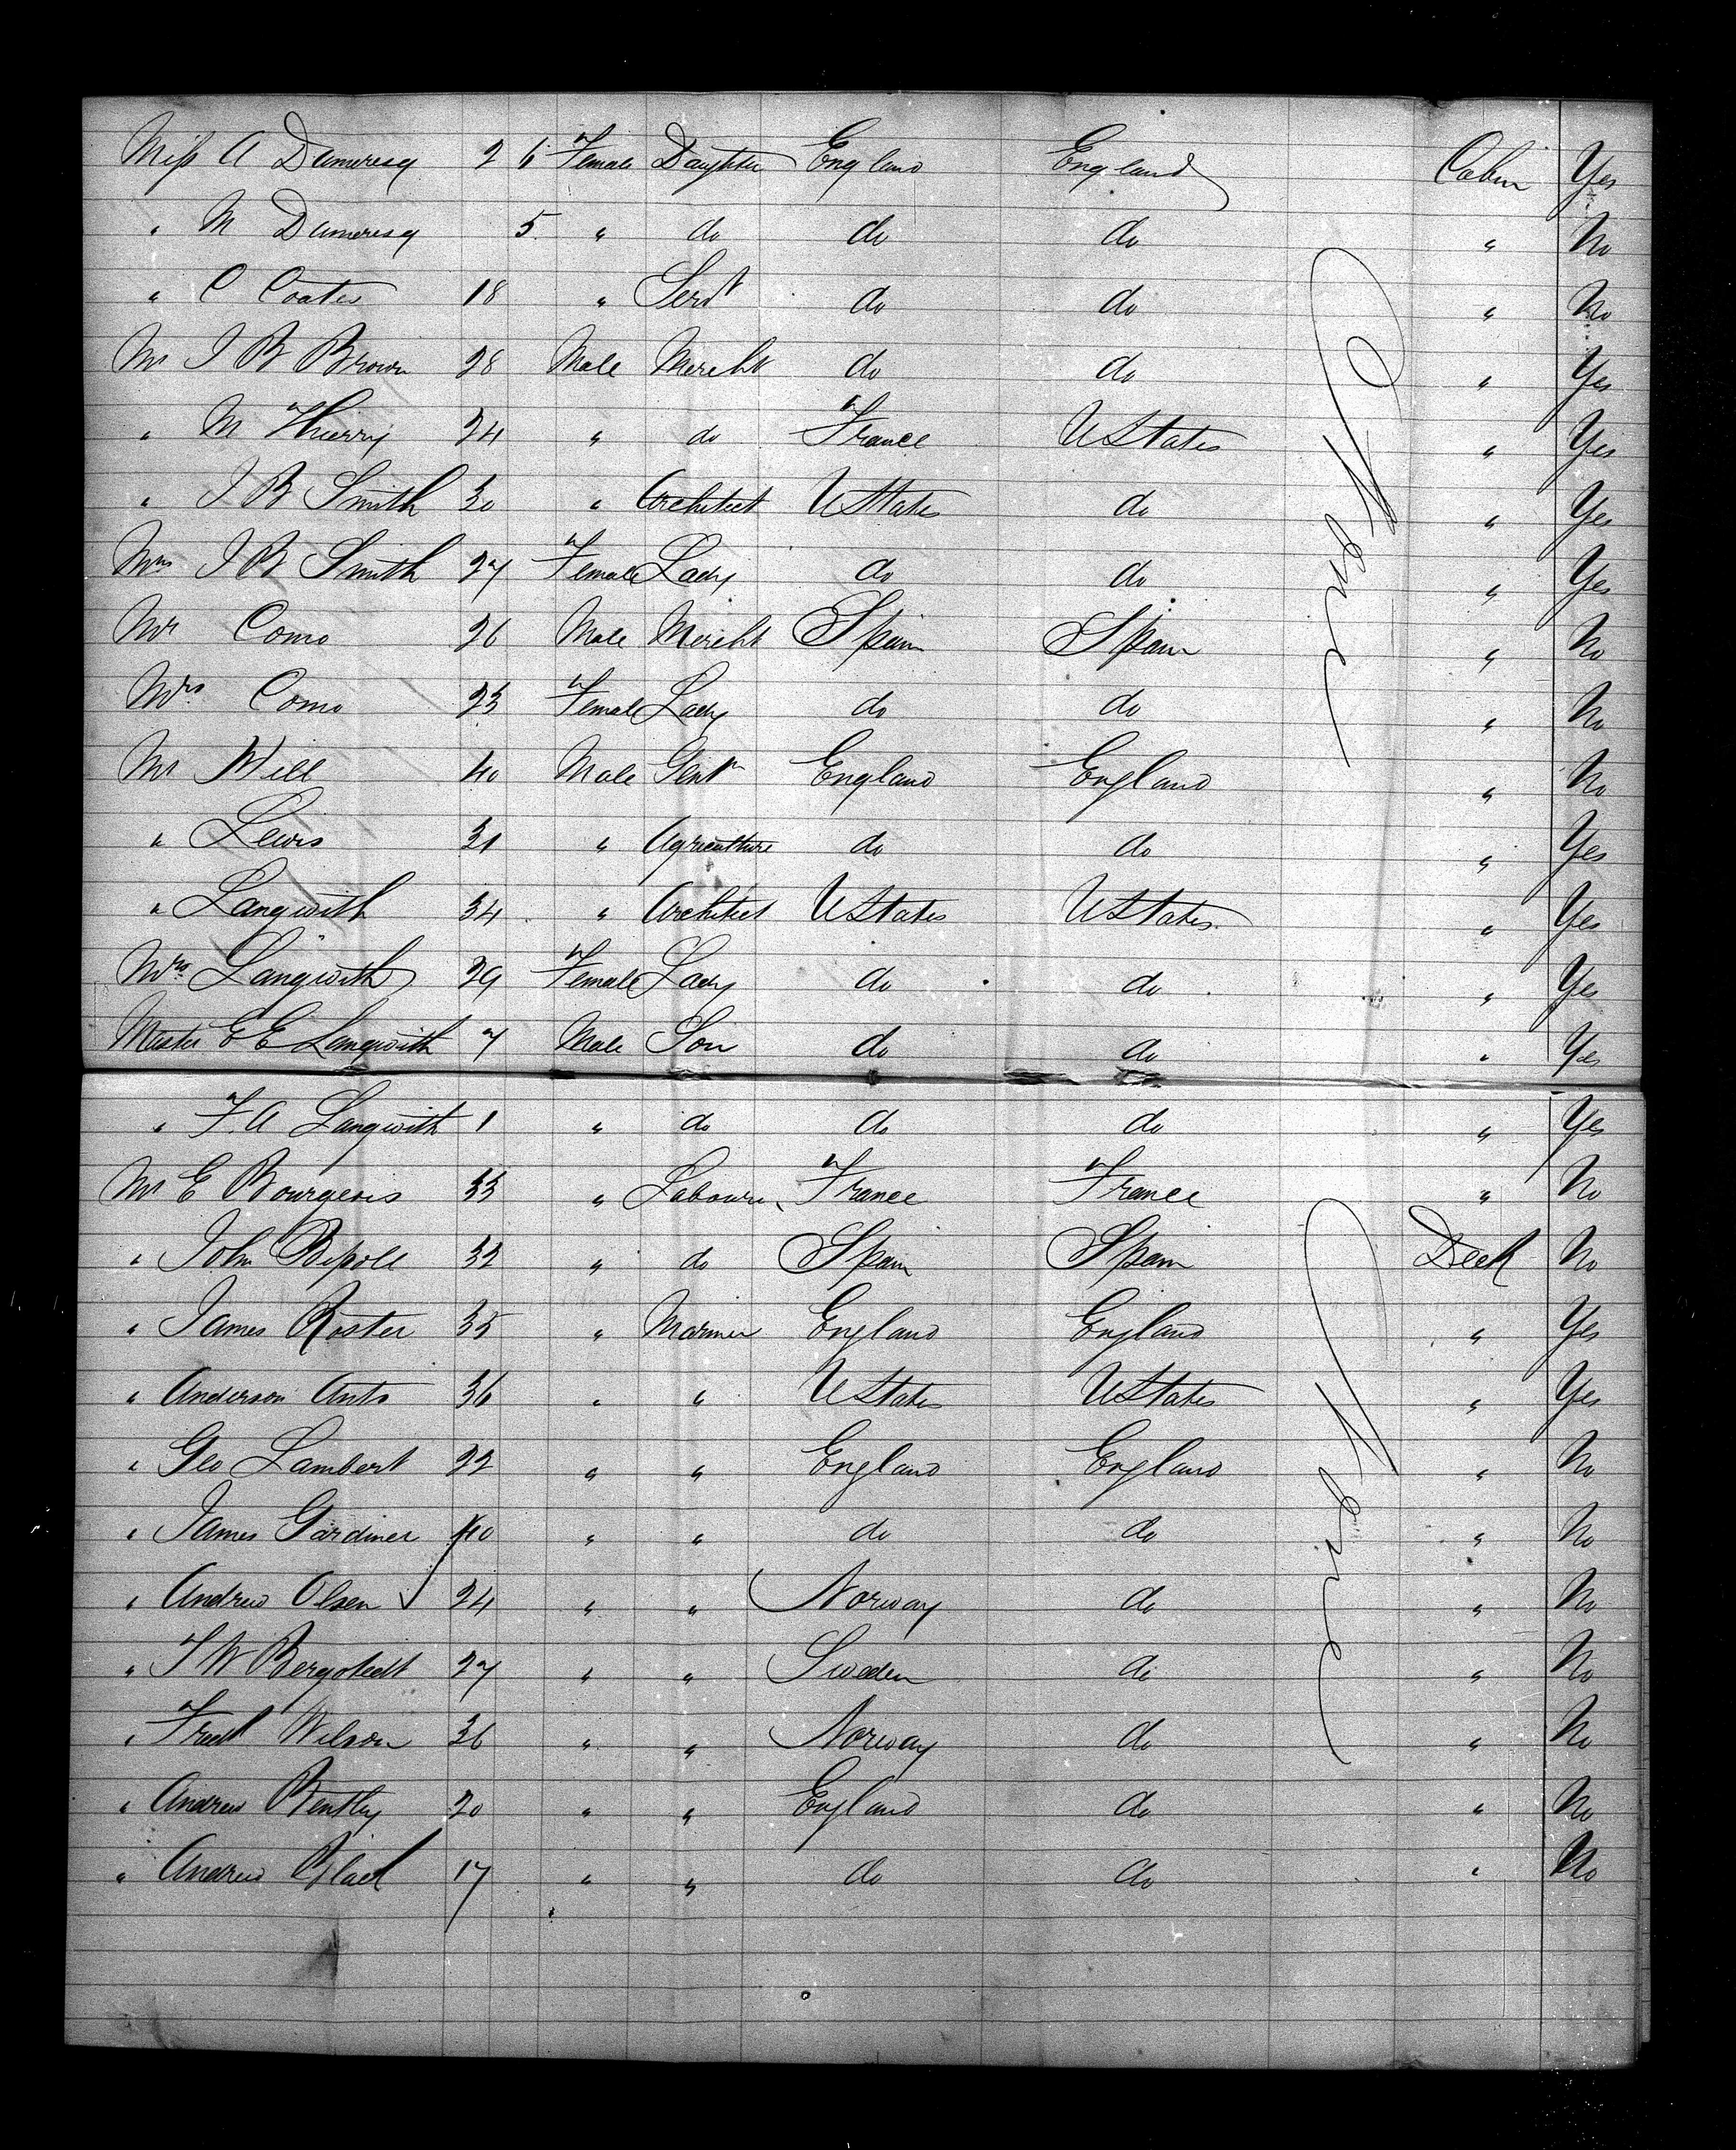 Miss A Dumaresq 2 6 Female Daughter England England Cabin Yes
" M Dumaresq 5 " do do do " No
" C Coates 18 " Servt do do " No
Mr J B Brown 28 Male Mercht do do " Yes
" M Thierry 24 " do France U States " Yes
" J B Smith 30 " Architect U States do " Yes
Mrs J B Smith 27 Female Lady do do " Yes
Mr Como 26 Male Mercht Spain Spain " No
Mrs Como 23 Female Lady do do " No
Mr Hill 40 Male Gentn England England " No
" Lewis 31 " Agriculture do do " Yes
" Langwith 34 " Architect U States U States " Yes
Mrs Langwith 29 Female Lady do do " Yes
Master E E Langwith 7 Male Son do do " Yes
" F. A Langwith 1 " do do do " Yes
Mr E Bourgeois 33 " Labourer France France " No
" John 32 " do Spain Spain Deck No
" James Roster 35 " Mariner England England " Yes
" Anderson Ants 36 " " U States U States " Yes
" Geo Lambert 22 " " England England " No
" James Gardiner 40 " " do do " No
" Andrew Olsen 24 " " Norway do " No
" Bergstedt 27 " " Sweden do " No
" Fredk Wilson 36 " " Norway do " No
" Andrew Bently 20 " " England do " No
" Andrew 17 " " do do " No